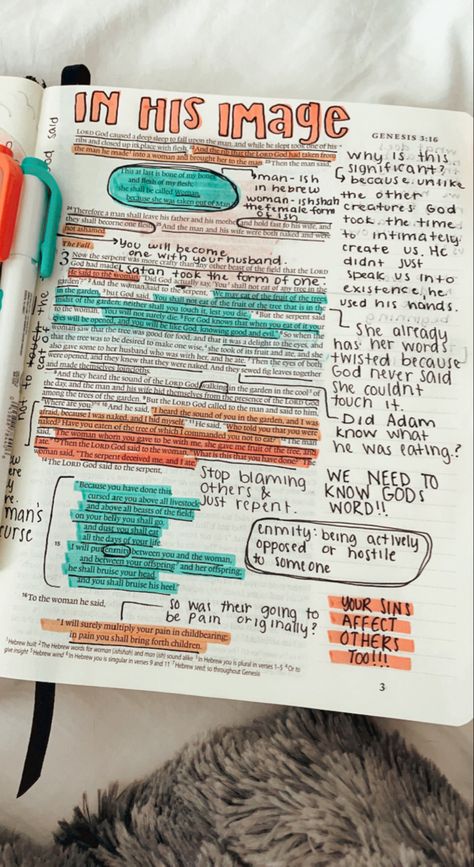 IN HIS IMAGE
GENESIS 3:16
LORD God caused a deep sleep to fall upon the man, and while he slept took one of his
ribs and closed up its place with flesh. And the rib that the LORD God had taken from
the man he made into a woman and brought her to the man. Then the man said,
"This at last is bone of my bones
and flesh of my flesh;
she shall be called Woman,
because she was taken out of Man."
man - ish
in hebrew
woman - ishshah
the female form
of ish
24 Therefore a man shall leave his father and his mother and hold fast to his wife, and
they shall become one flesh. 25 And the man and his wife were both naked and were
not ashamed.
You will become
one with your husband.
The Fall
satan took the form of one.
3 Now the serpent was more crafty than any other beast of the field that the LORD
God had made.
He said to the woman, "Did God actually say, 'You shall not eat of any tree in the
garden'?" 2 And the woman said to the serpent, "We may eat of the fruit of the trees
in the garden, 3 but God said, 'You shall not eat of the fruit of the tree that is in the
midst of the garden, neither shall you touch it, lest you die.'" 4 But the serpent said
to the woman, "You will not surely die. 5 For God knows that when you eat of it your
eyes will be opened, and you will be like God, knowing good and evil." 6 So when the
woman saw that the tree was good for food, and that it was a delight to the eyes, and
that the tree was to be desired to make one wise, she took of its fruit and ate, and she
also gave some to her husband who was with her, and he ate. 7 Then the eyes of both
were opened, and they knew that they were naked. And they sewed fig leaves together
and made themselves loincloths.
8 And they heard the sound of the LORD God walking in the garden in the cool of
the day, and the man and his wife hid themselves from the presence of the LORD God
among the trees of the garden. 9 But the LORD God called to the man and said to him,
"Where are you?" 10 And he said, "I heard the sound of you in the garden, and I was
afraid, because I was naked, and I hid myself." 11 He said, "Who told you that you were
naked? Have you eaten of the tree of which I commanded you not to eat?" 12 The man
said, "The woman whom you gave to be with me, she gave me fruit of the tree, and
I ate." 13 Then the LORD God said to the woman, "What is this that you have done?" The
woman said, "The serpent deceived me, and I ate."
14 The LORD God said to the serpent,
"Because you have done this,
cursed are you above all livestock
and above all beasts of the field;
on your belly you shall go,
and dust you shall eat
all the days of your life.
15 I will put enmity between you and the woman,
and between your offspring and her offspring;
he shall bruise your head,
and you shall bruise his heel."
16 To the woman he said,
"I will surely multiply your pain in childbearing;
in pain you shall bring forth children.
why is this
significant?
because unlike
the other
creatures God
took the time
to intimately
create us. He
didnt just
speak us into
existence, he
used his hands.
She already
has her words
twisted because
God never said
she couldnt
touch it.
Did Adam
know what
he was eating?
Stop blaming
others &
just repent.
WE NEED TO
KNOW GODS
WORD!!
Enmity: being actively
opposed or hostile
to someone
so was their going to
be pain originally?
YOUR SINS
AFFECT
OTHERS
TOO!!!
God said
not to eat of
the
man's
curse
3